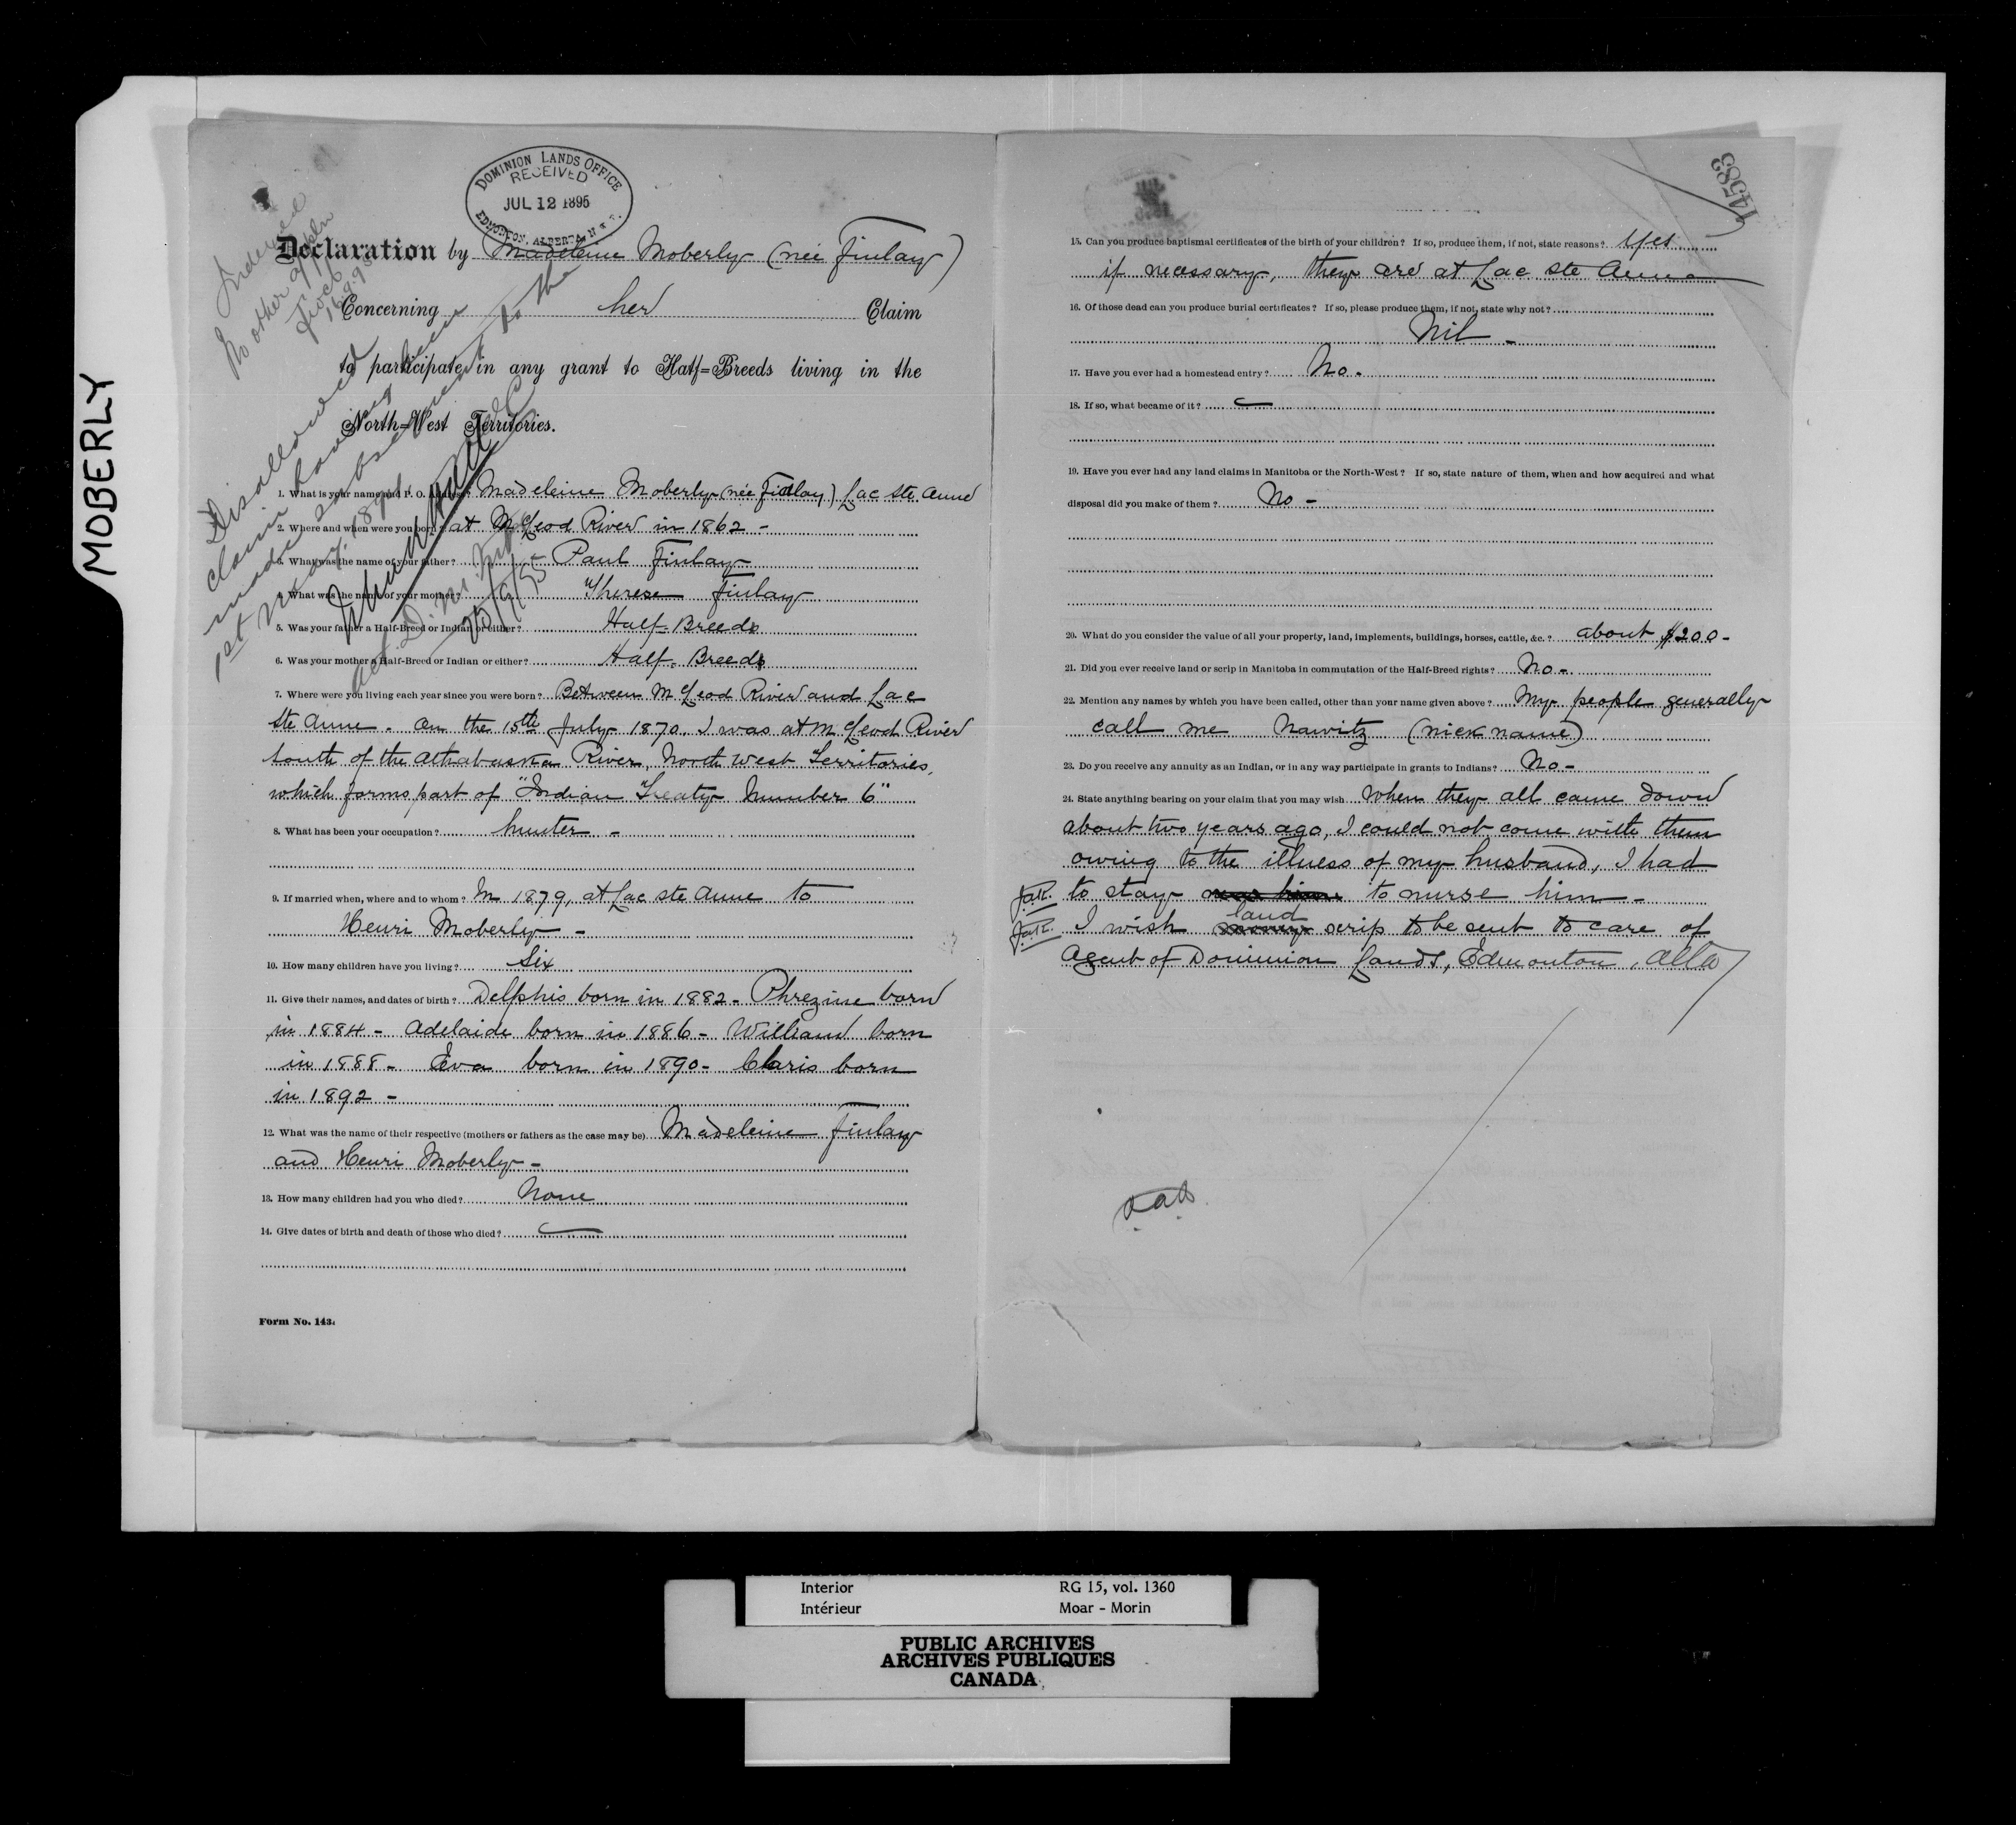 MOBERLY
DOMINION LANDS OFFICE
RECEIVED
JUL 12 1895
EDMONTON, ALBERTA, N.W.T.
Declaration by Madeleine Moberly (née Finlay)
Concerning her Claim
to participate in any grant to Half=Breeds living in the
North=West Territories.
Indexed
No other appln
16.9.95
Disallowed
claim having been
made subsequent to the
1st May, 1894.
25/9/95
1. What is your name and P. O. Address? Madeleine Moberly (née Finlay) Lac Ste. Anne
2. Where and when were you born? at McLeod River in 1862 -
3. What was the name of your father? Paul Finlay
4. What was the name of your mother? Therese Finlay
5. Was your father a Half-Breed or Indian or either? Half-Breed
6. Was your mother a Half-Breed or Indian or either? Half-Breed
7. Where were you living each year since you were born? Between McLeod River and Lac
Ste Anne. On the 15th July 1870. I was at McLeod River
south of the Athabaska River, North West Territories,
which forms part of "Indian Treaty Number 6"
8. What has been your occupation? hunter -
9. If married when, where and to whom? In 1879, at Lac Ste Anne to
Henri Moberly -
10. How many children have you living? Six
11. Give their names, and dates of birth? Delphis born in 1882 - Phrezine born
in 1884 - Adelaide born in 1886 - William born
in 1888 - Eva born in 1890 - Claris born
in 1892 -
12. What was the name of their respective (mothers or fathers as the case may be) Madeleine Finlay
and Henri Moberly -
13. How many children had you who died? None
14. Give dates of birth and death of those who died?
Form No. 143.
14583
15. Can you produce baptismal certificates of the birth of your children? If so, produce them, if not, state reasons? Yes
if necessary, they are at Lac Ste Anne
16. Of those dead can you produce burial certificates? If so, please produce them, if not, state why not?
Nil -
17. Have you ever had a homestead entry? No -
18. If so, what became of it?
19. Have you ever had any land claims in Manitoba or the North-West? If so, state nature of them, when and how acquired and what
disposal did you make of them? No -
20. What do you consider the value of all your property, land, implements, buildings, horses, cattle, &c.? about $200 -
21. Did you ever receive land or scrip in Manitoba in commutation of the Half-Breed rights? No -
22. Mention any names by which you have been called, other than your name given above? My people generally
call me Nawitz (nick name)
23. Do you receive any annuity as an Indian, or in any way participate in grants to Indians? No -
24. State anything bearing on your claim that you may wish When they all came down
about two years ago, I could not come with them
owing to the illness of my husband, I had
to stay to nurse him -
land
I wish money scrip to be sent to care of
Agent of Dominion Lands, Edmonton, Alta
Interior RG 15, vol. 1360
Intérieur Moar - Morin
PUBLIC ARCHIVES
ARCHIVES PUBLIQUES
CANADA